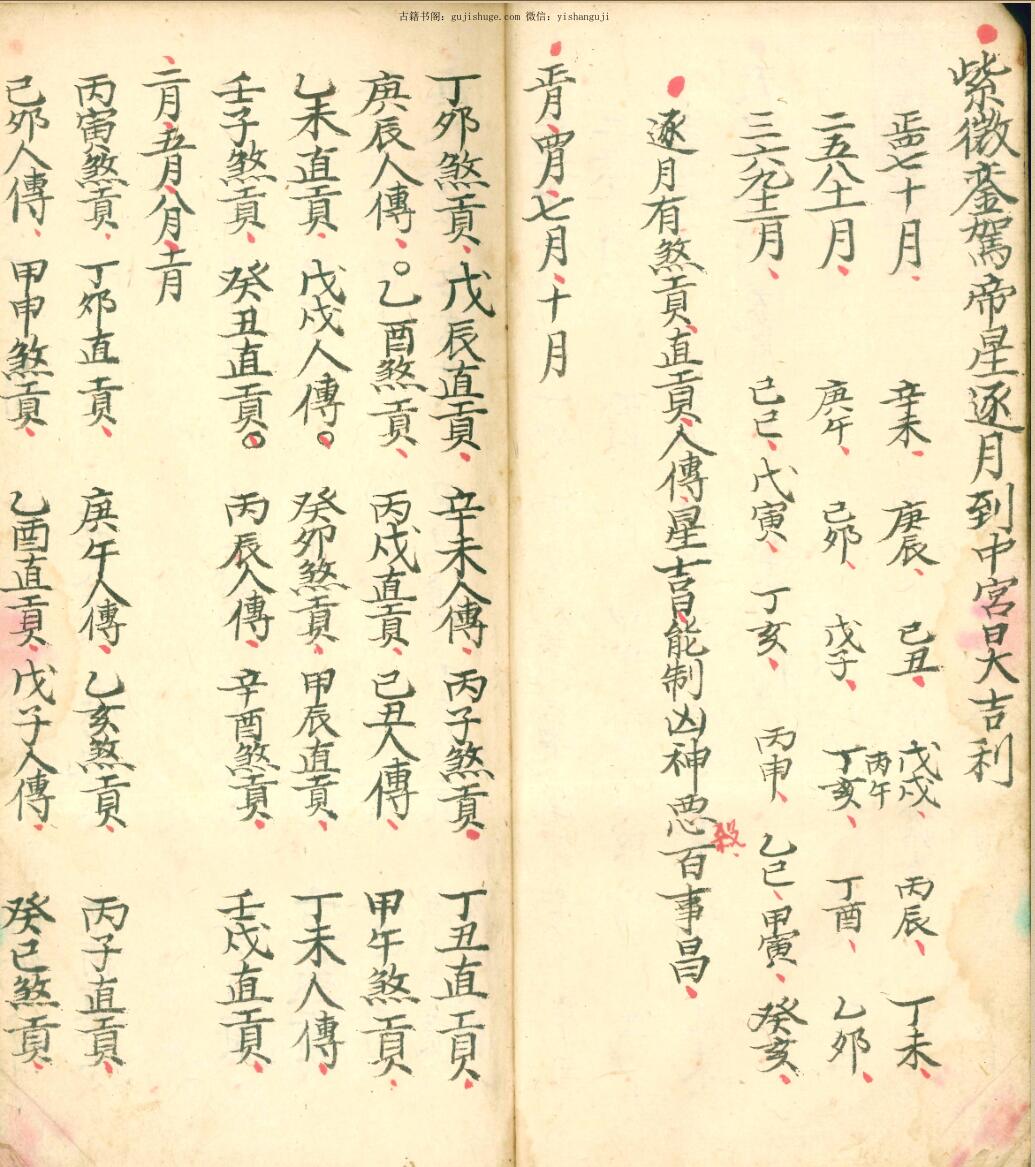 古籍书阁：gujishuge.com 微信：yishanguji
紫微銮駕帝星逐月到中宮是大吉利
正四七十月、辛未、庚辰、己丑、戊戌、丙辰、丁未、
丙午
二五八十一月、庚午、己卯、戊子、丁亥、丁酉、乙卯、
三六九十二月、己巳、戊寅、丁亥、丙申、乙巳、甲寅、癸亥、
逐月有煞貢、直貢、人傳星吉日、能制凶神恶百事昌、
殺
正月、四月、七月、十月
丁卯煞貢、戊辰直貢、辛未人傳、丙子煞貢、丁丑直貢、
庚辰人傳、。乙酉煞貢、丙戌直貢、己丑人傳、甲午煞貢、
乙未直貢、戊戌人傳。癸卯煞貢、甲辰直貢、丁未人傳、
壬子煞貢、癸丑直貢。丙辰人傳、辛酉煞貢、壬戌直貢、
二月、五月、八月、十一月
丙寅煞貢、丁卯直貢、庚午人傳、乙亥煞貢、丙子直貢、
己卯人傳、甲申煞貢、乙酉直貢、戊子人傳、癸巳煞貢、